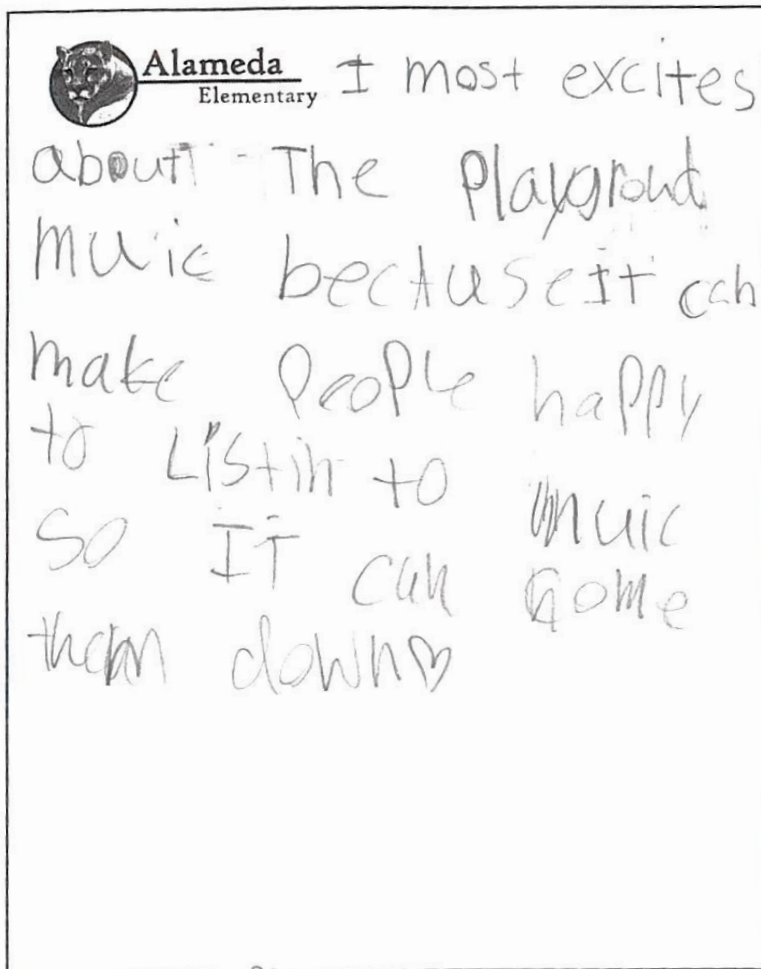 Alameda
Elementary
I most excites
about The Playgroud
muic becauseit can
make People happy
to Listin to muic
so IT can come
them down♡